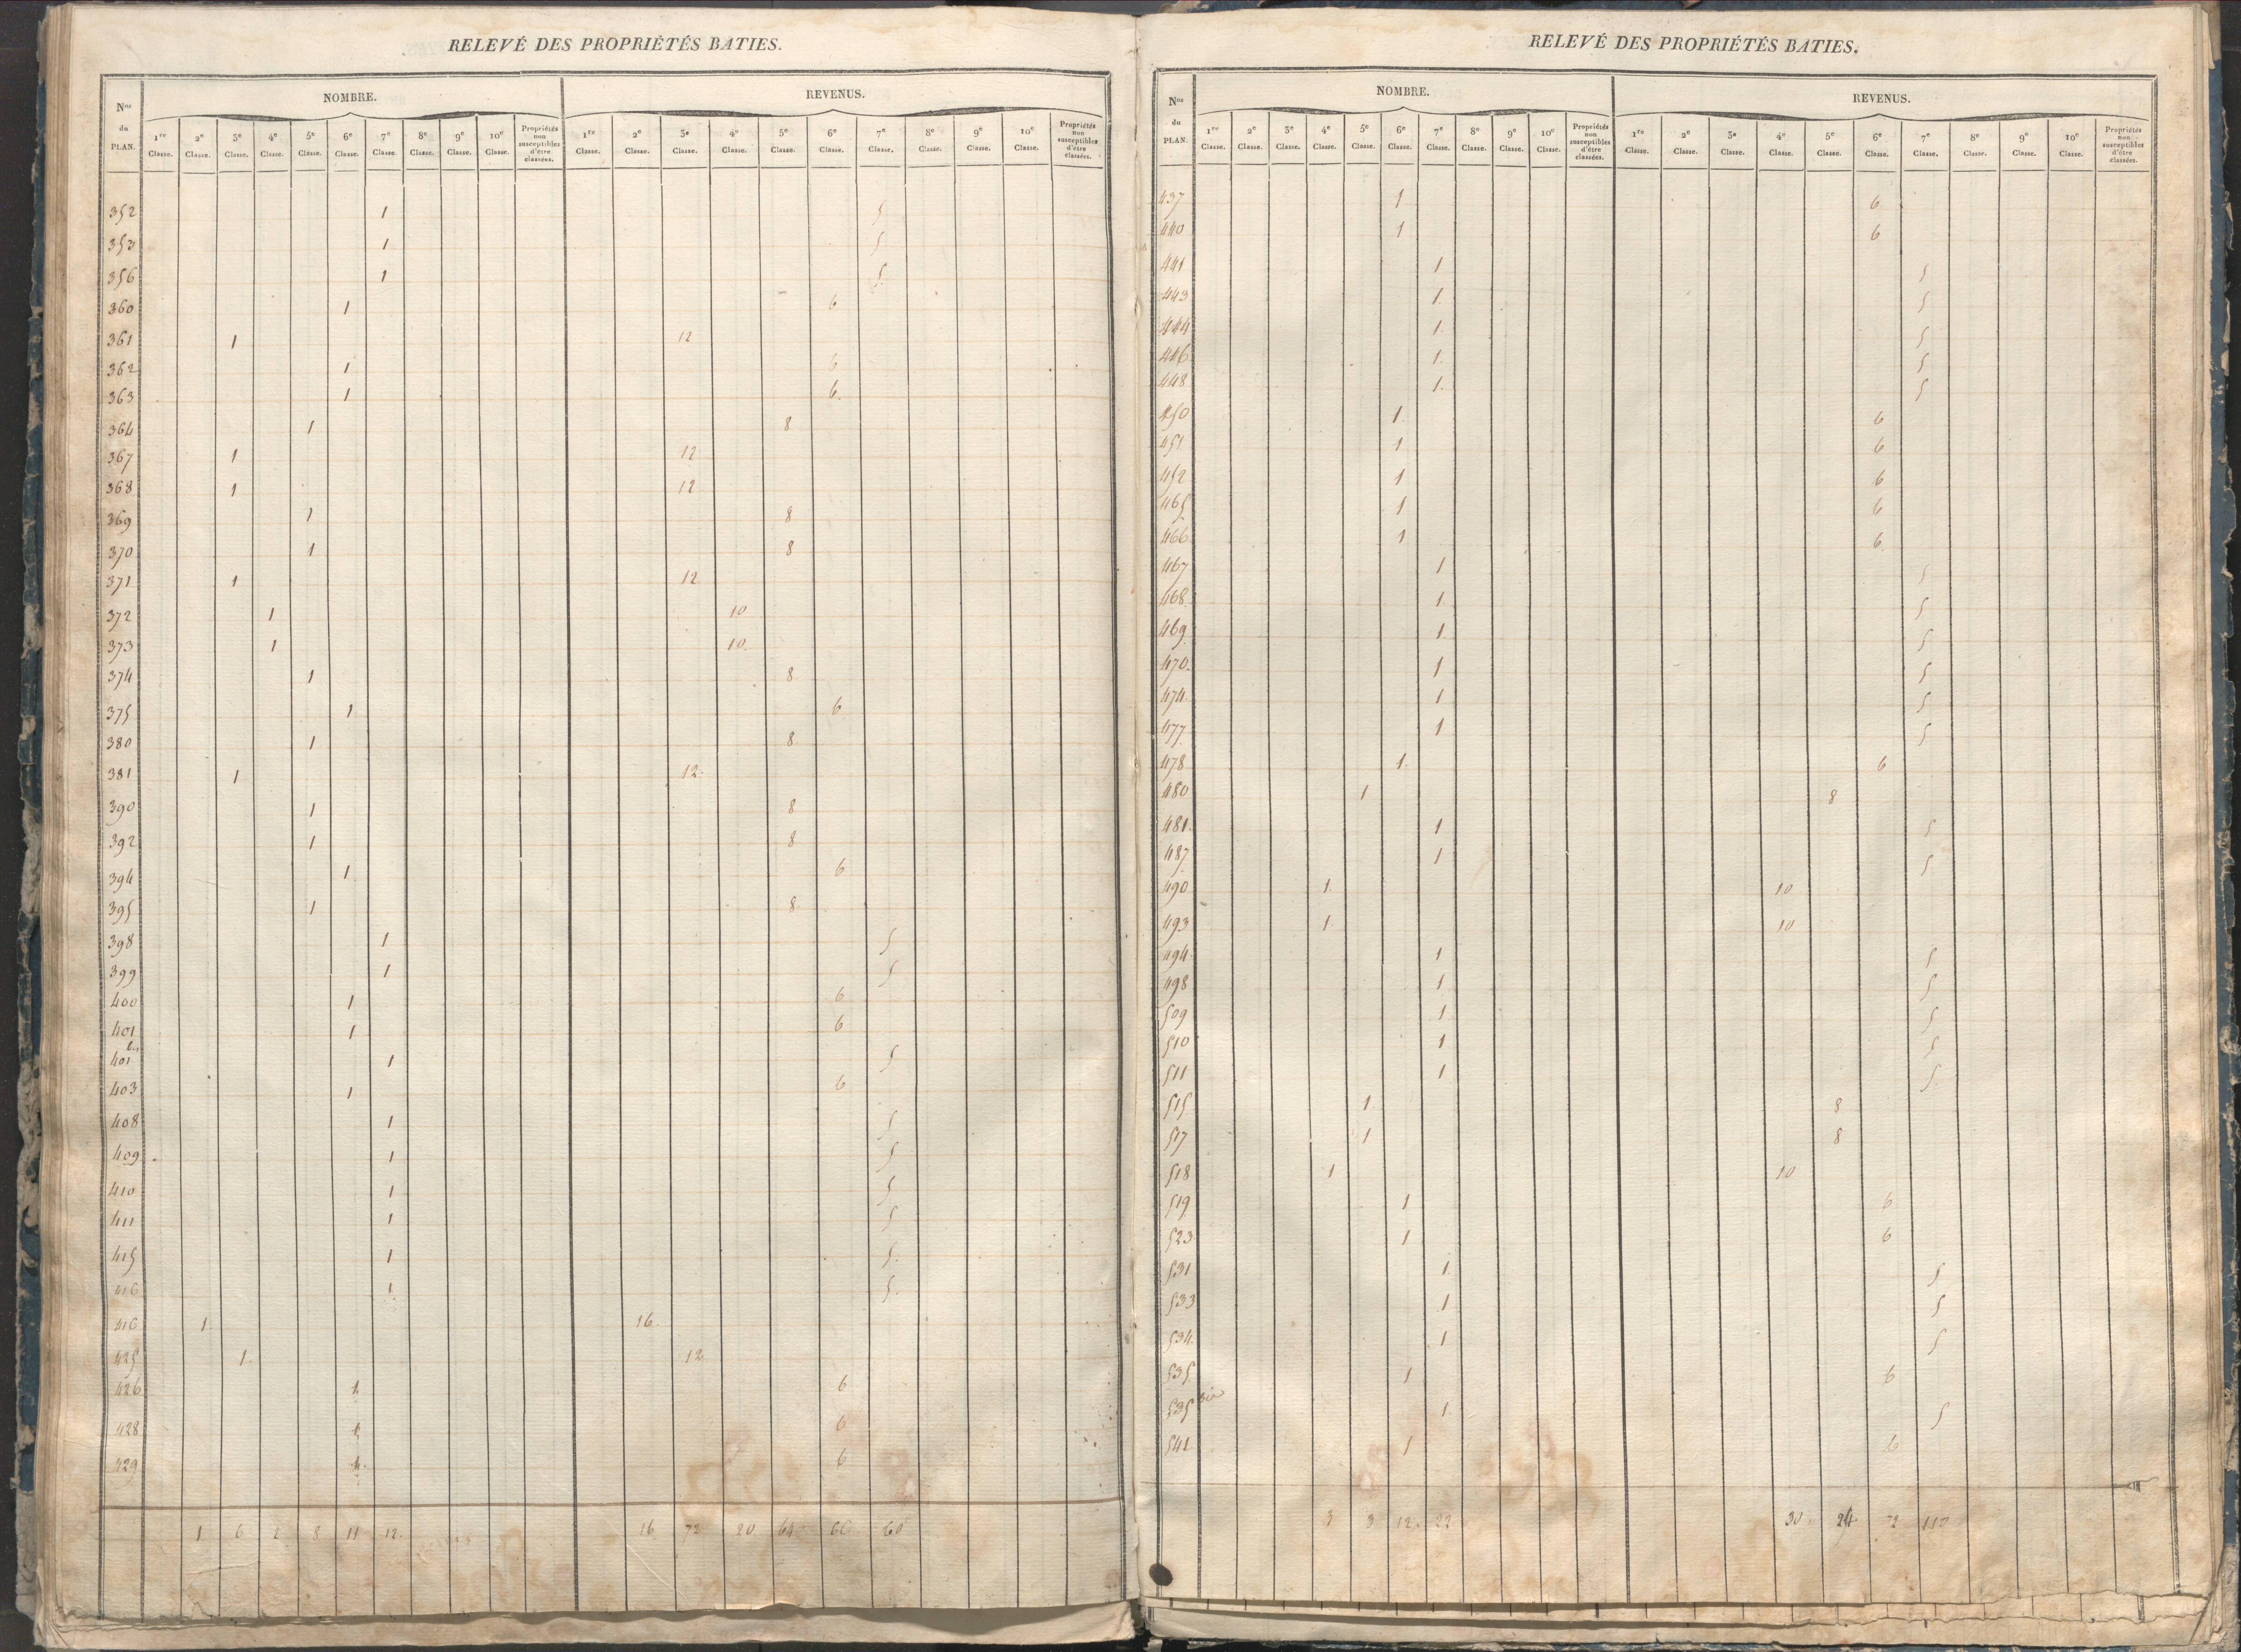 RELEVÉ DES PROPRIÉTÉS BATIES.
Nos du PLAN. NOMBRE. REVENUS.
1re Classe. 2e Classe. 3e Classe. 4e Classe. 5e Classe. 6e Classe. 7e Classe. 8e Classe. 9e Classe. 10e Classe. Propriétés non susceptibles d'être classées. 1re Classe. 2e Classe. 3e Classe. 4e Classe. 5e Classe. 6e Classe. 7e Classe. 8e Classe. 9e Classe. 10e Classe. Propriétés non susceptibles d'être classées.
352 1 5
353 1 5
356 1 5
360 1 6
361 1 12
362 1 6
363 1 6
364 1 8
367 1 12
368 1 12
369 1 8
370 1 8
371 1 12
372 1 10
373 1 10
374 1 8
375 1 6
380 1 8
381 1 12
390 1 8
392 1 8
394 1 6
395 1 8
398 1 5
399 1 5
400 1 6
401 1 6
401 1 5
403 1 6
408 1 5
409 1 5
410 1 5
411 1 5
415 1 5
416 1 5
416 1 16
425 1 12
426 1 6
428 1 6
429 1 6
1 6 2 8 11 12 16 72 20 64 66 60
RELEVÉ DES PROPRIÉTÉS BATIES.
Nos du PLAN. NOMBRE. REVENUS.
1re Classe. 2e Classe. 3e Classe. 4e Classe. 5e Classe. 6e Classe. 7e Classe. 8e Classe. 9e Classe. 10e Classe. Propriétés non susceptibles d'être classées. 1re Classe. 2e Classe. 3e Classe. 4e Classe. 5e Classe. 6e Classe. 7e Classe. 8e Classe. 9e Classe. 10e Classe. Propriétés non susceptibles d'être classées.
437 1 6
440 1 6
441 1 5
443 1 5
444 1 5
446 1 5
448 1 5
450 1 6
451 1 6
452 1 6
465 1 6
466 1 6
467 1 5
468 1 5
469 1 5
470 1 5
474 1 5
477 1 5
478 1 6
480 1 8
481 1 5
487 1 5
490 1 10
493 1 10
494 1 5
498 1 5
509 1 5
510 1 5
511 1 5
515 1 8
517 1 8
518 1 10
519 1 6
523 1 6
531 1 5
533 1 5
534 1 5
535 1 6
535 bis 1 5
541 1 6
3 3 12 22 30 24 72 110